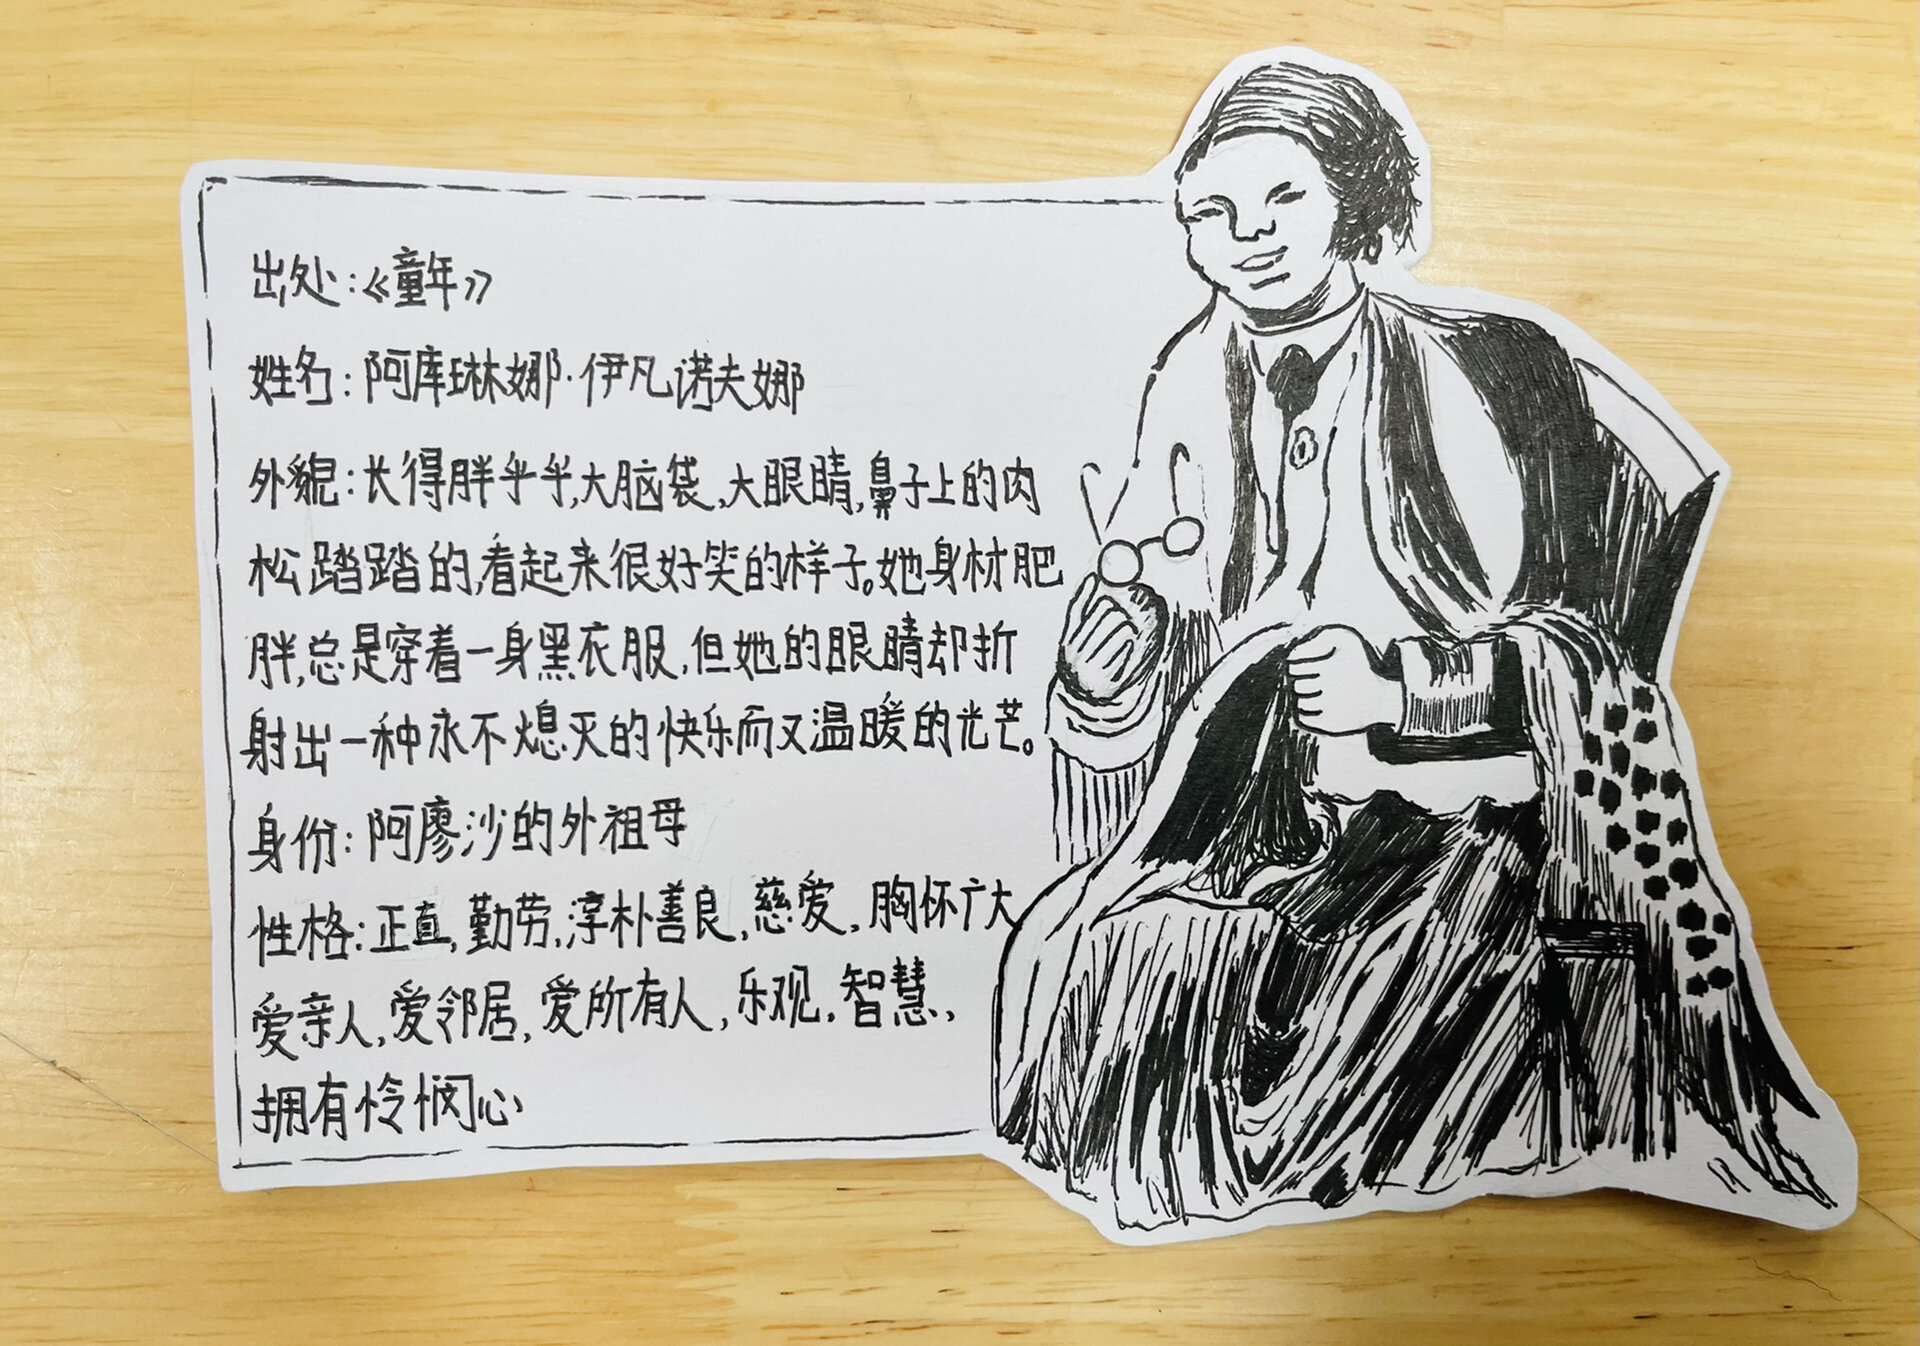 出处：《童年》
姓名：阿库琳娜·伊凡诺夫娜
外貌：长得胖乎乎，大脑袋，大眼睛，鼻子上的肉
松踏踏的，看起来很好笑的样子。她身材肥
胖，总是穿着一身黑衣服，但她的眼睛却折
射出一种永不熄灭的快乐而又温暖的光芒。
身份：阿廖沙的外祖母
性格：正直，勤劳，淳朴善良，慈爱，胸怀广大
爱亲人，爱邻居，爱所有人，乐观，智慧，
拥有怜悯心